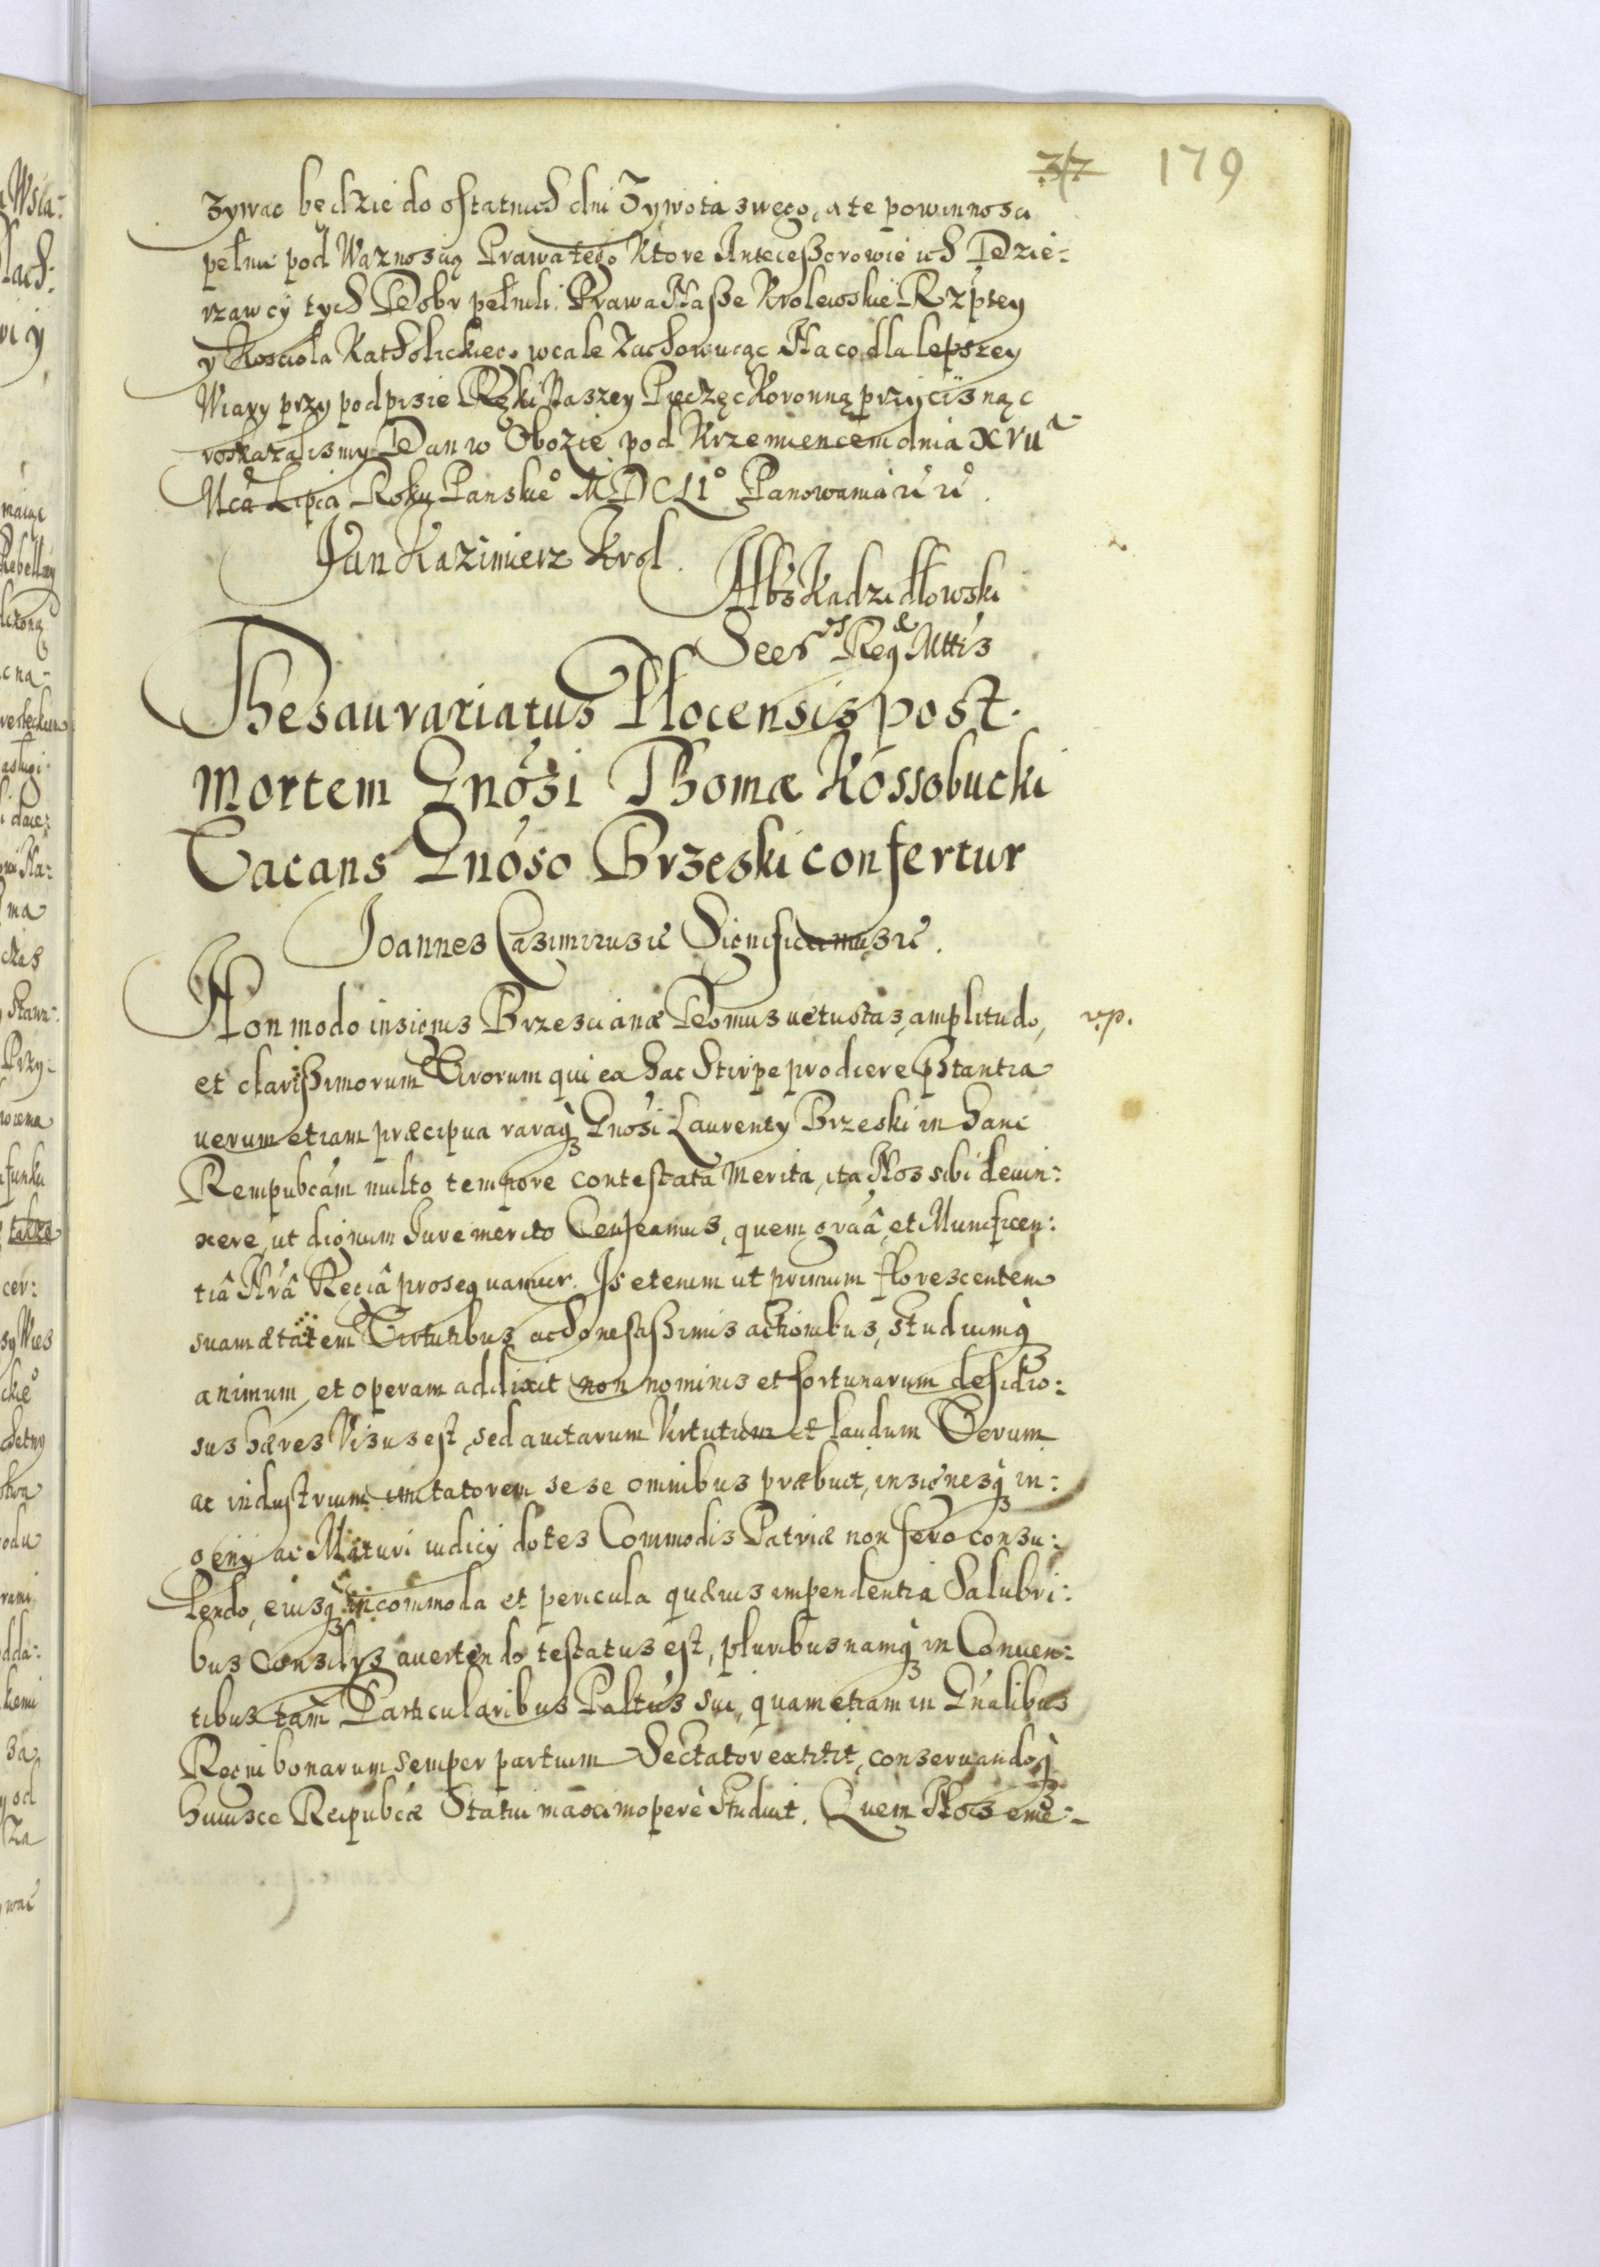 317 179
zywac będzie do ostatnich dni Zywota swego, a te powinnosci
pełnic pod Waznoscią Prawa tego Ktore Antecessorowie ich Dzie:
rzawcy tych Dobr pełnili. Prawa Nasze Krolewskie Rzptey
y Kosciola Katholickiego wcale Zachowuiąc Na co dla lepszey
Wiary przy podpisie Ręki Naszey Pieczęc Koronną przycisnąc
roskazalismy Dan w Obozie pod Krzemiencem dnia XVII a
Mca Lipca Roku Panskieo MDCLIo Panowania &c &c.
Jan Kazimierz Krol.
Albs Kadzidłowski
Secr Reg Mttis
Thesaurariatus Plocensis post
mortem Gnosi Thomæ Kossobucki
Vacans Gnoso Brzeski confertur
Joannes Casimirus &c Significamus &c.
Non modo insignis Brzescianæ Domus uetustas, amplitudo, rp.
et clarissimorum Virorum qui ea hac Stirpe prodiere pstantia
uerum etiam præcipua raraq Gnosi Laurenty Brzeski in hanc
Rempubcam multo tempore contestata merita, ita Nos sibi deuin:
xere, ut dignum Jure merito Censeamus, quem graa, et Munificen:
tiâ Nrâ Regiâ prosequamur. Is etenim ut primum florescentem
suam ætatem Virtutibus ac honestissimis actionibus, studiumq
animum, et operam addixit non nominis et fortunarum desidio:
sus hæres Visus est, sed auitarum Virtutum et laudum Verum
ac industrium imitatorem se se omnibus præbuit, insignesq in:
genij ac Maturi iudicij dotes Commodis Patriæ non sero consu:
lendo, eiusq incommoda et pericula quæuis impendentia Salubri:
bus Consilys auertendo testatus est, pluribus namq in Conuen:
tibus tam Particularibus Paltus sui, quam etiam in Gnalibus
Regni bonarum semper partium Sectator extitit, conseruandoq
huiusce Reipubcæ Statui maximoperè studuit. Quem Nos eme: